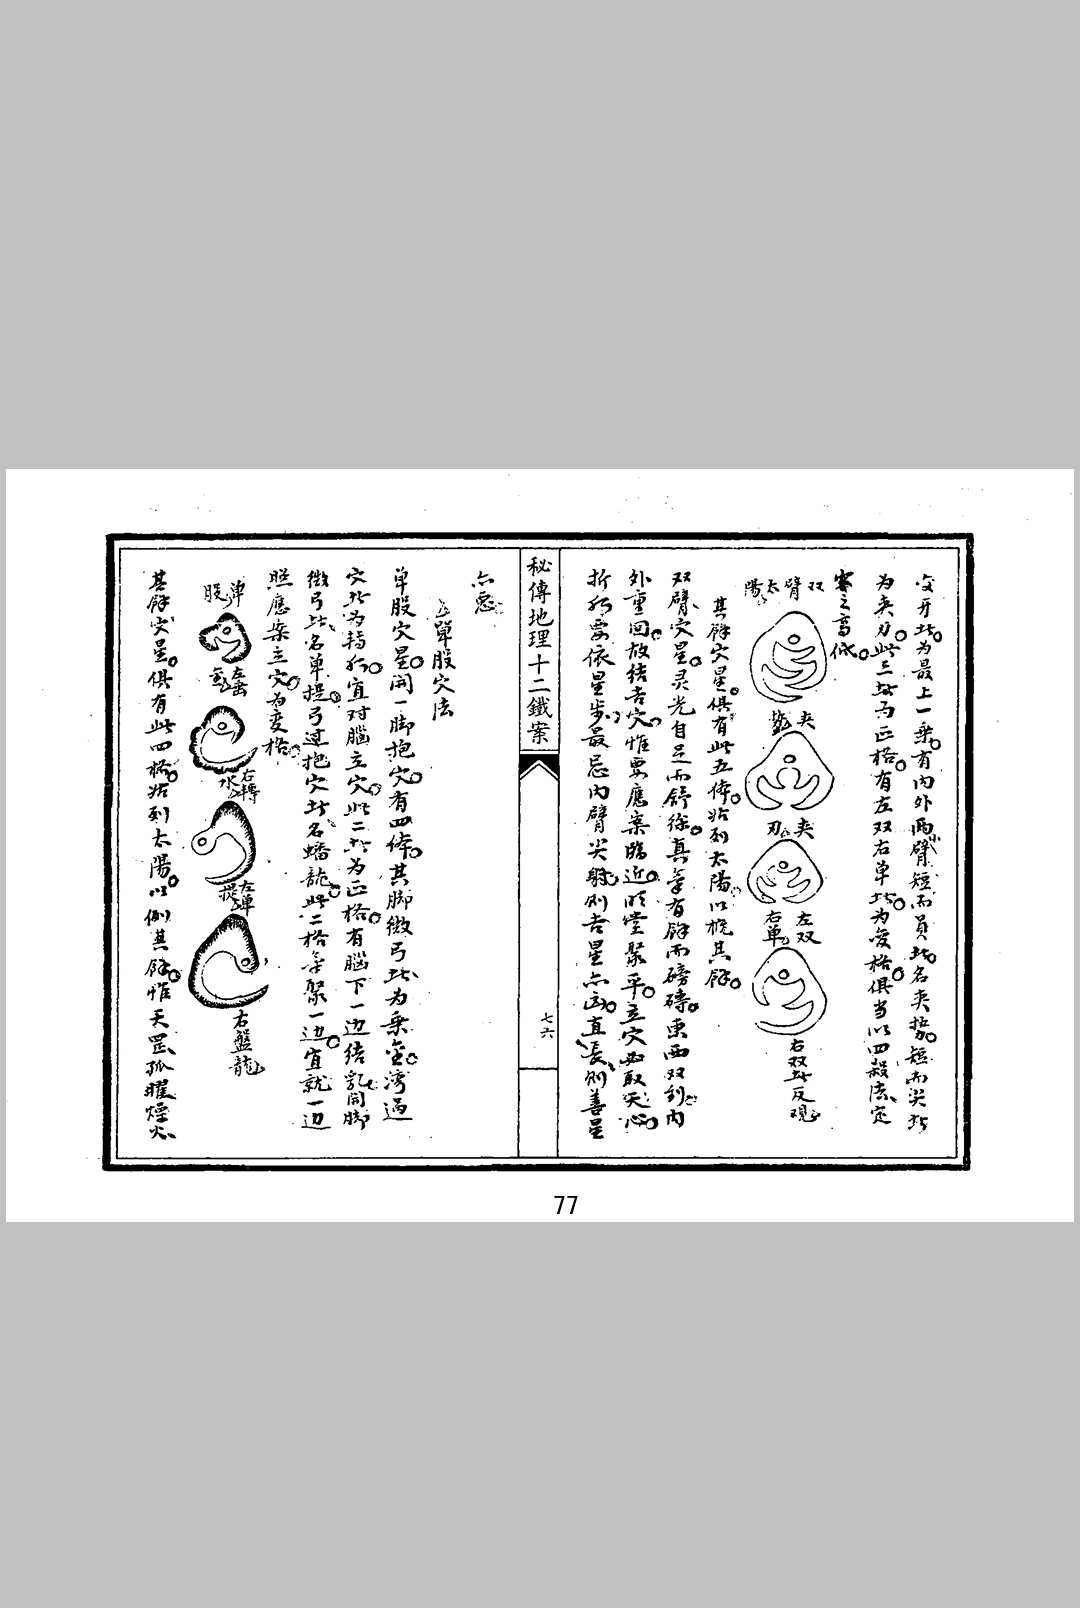 交开者为最上一乗有内外两臂短而員者名夹势短而尖者
为夹刃此三者为正格有左双右单者为变格俱当以四殺法定
穴之高低
双臂太陽
夹势
夹刃
左双右单
右双者反覌
其餘穴星俱有此五体始列太陽以槩其餘
双臂穴星灵光自足而舒徐真氣有餘而磅礴東西双到内
外重回故结吉穴惟要應案臨近明堂聚平立穴必取天心
折水要依星步最忌内臂尖射則吉星亦凶直長則善星
秘傳地理十二鐵案
七六
亦惡
单股穴法
单股穴星開一脚抱穴有四体其脚微弓者为乗金湾过
穴者为转水宜对腦立穴此二者为正格有腦下一边结乳開脚
微弓者名单提弓过抱穴者名蟠龍此二格氣聚一边宜就一边
照應案立穴为变格
单股
右轉水
左单提
右盤龍
其餘穴星俱有此四格始列太陽以例其餘惟天罡孤曜燥火